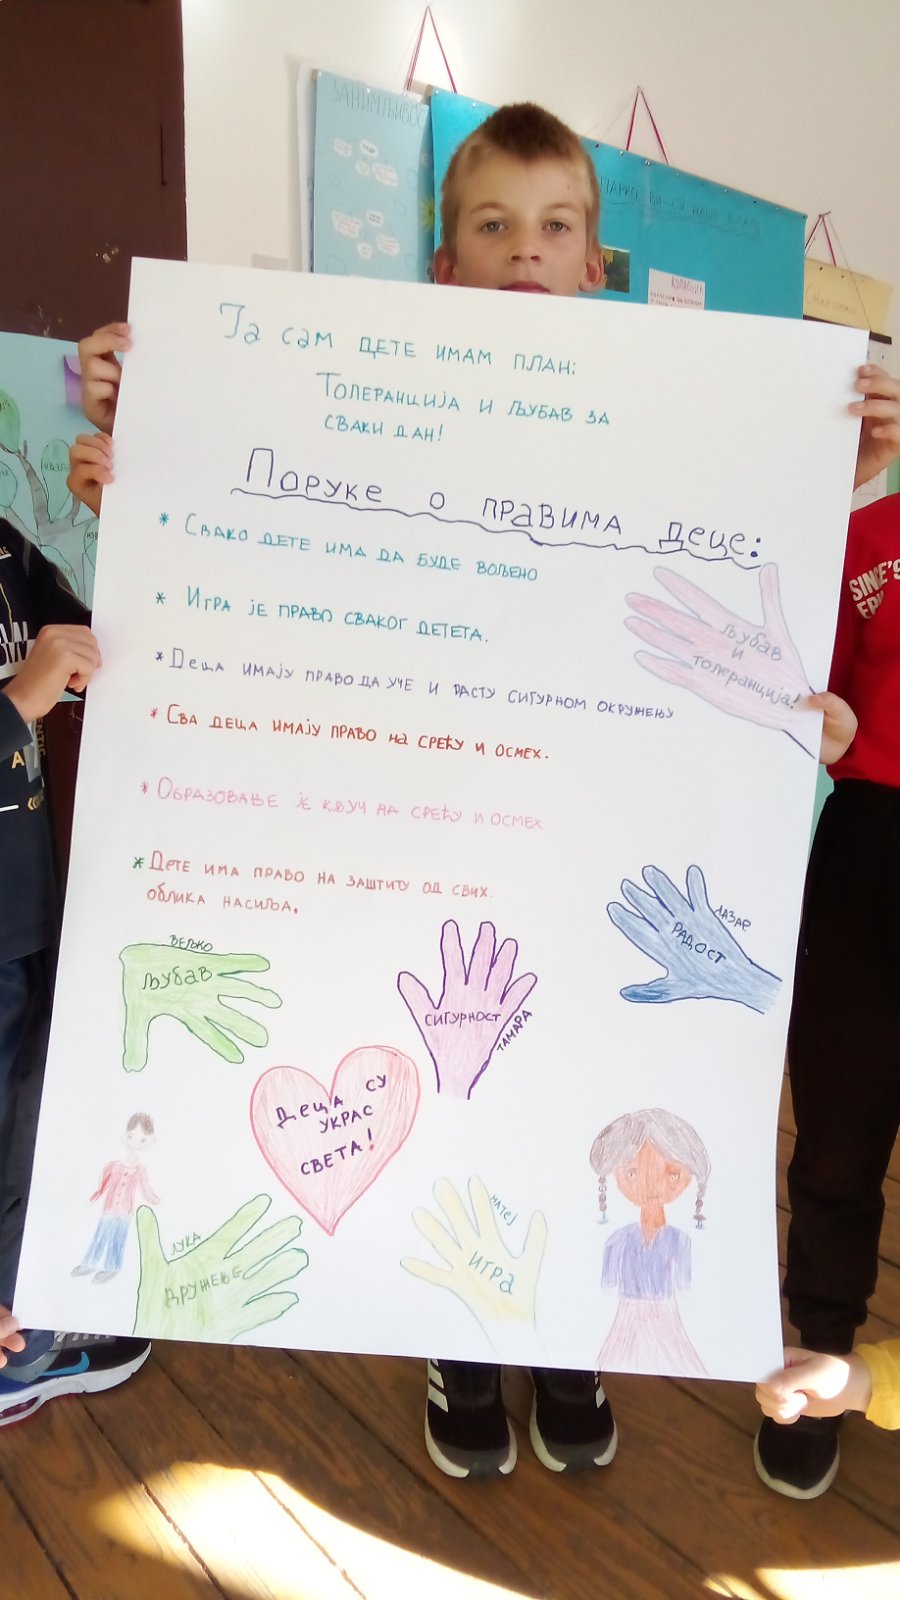 ЗАНИМЉИВОС
ПАРКО ВИ СУ НАШЕ БЛАГО
Ја сам дете имам план:
Толеранција и љубав за
сваки дан!
Поруке о правима деце:
* Свако дете има да буде вољено
* Игра је право сваког детета.
* Деца имају право да уче и расту сигурном окружењу
* Сва деца имају право на срећу и осмех.
* Образовање је кључ на срећу и осмех
* Дете има право на заштиту од свих
облика насиља.
Љубав
и
толеранција!
ВЕЉКО
Љубав
СИГУРНОСТ
ТАМАРА
ЛАЗАР
РАДОСТ
Деца су
украс
света!
ЛУКА
ДРУЖЕЊЕ
МАТЕЈ
ИГРА
SINCE'9